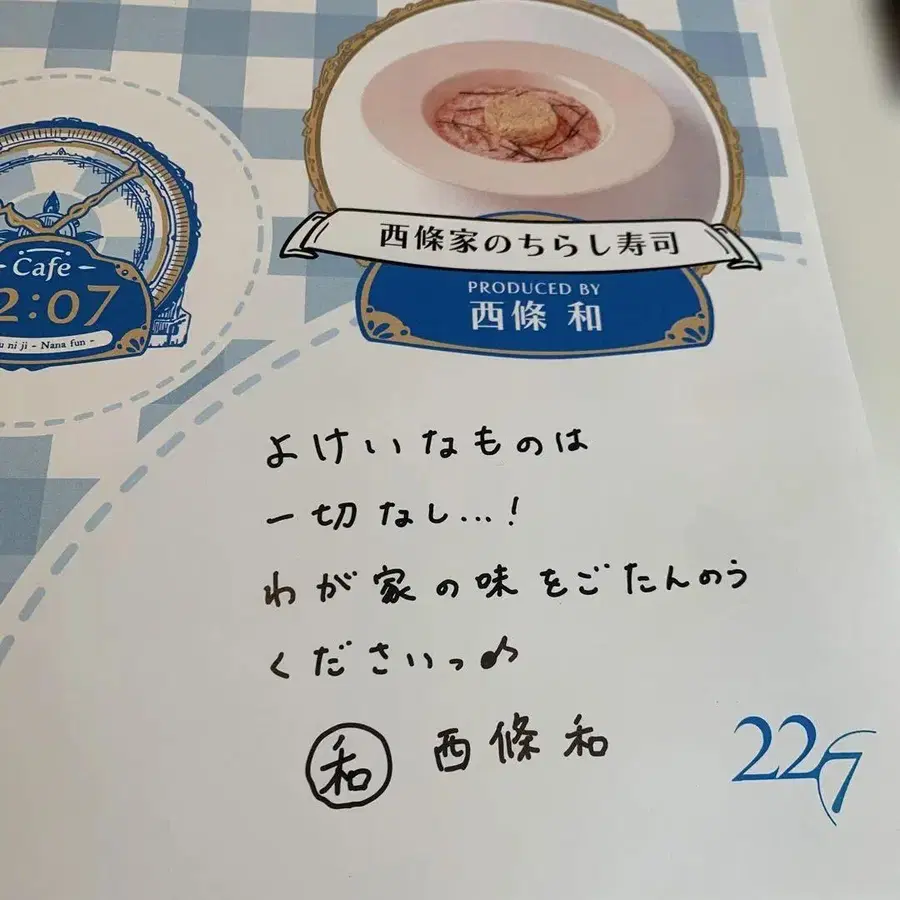 西條家のちらし寿司
PRODUCED BY
西條 和
- Cafe -
2:07
ni ji - Nana fun -
よけいなものは
一切なし…!
わが家の味をごたんのう
くださいっ♪
和 西條和
22/7